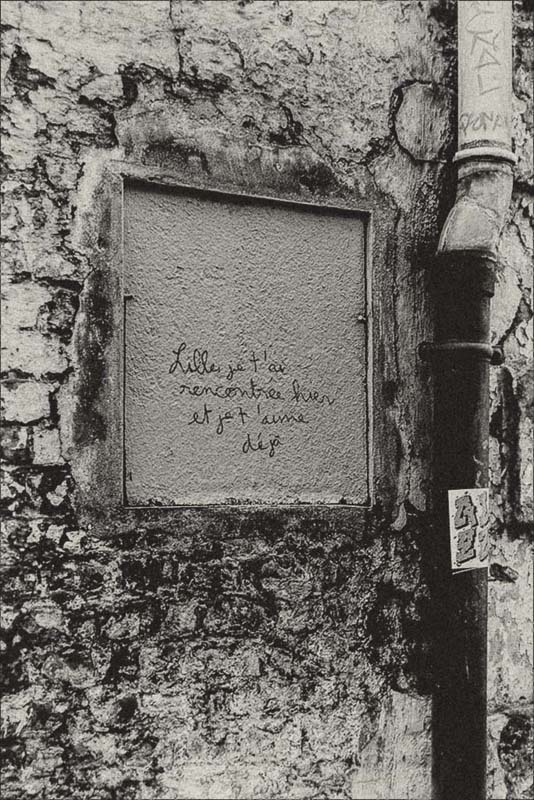 Lille, je t'ai
rencontrée hier
et je t'aime
déjà